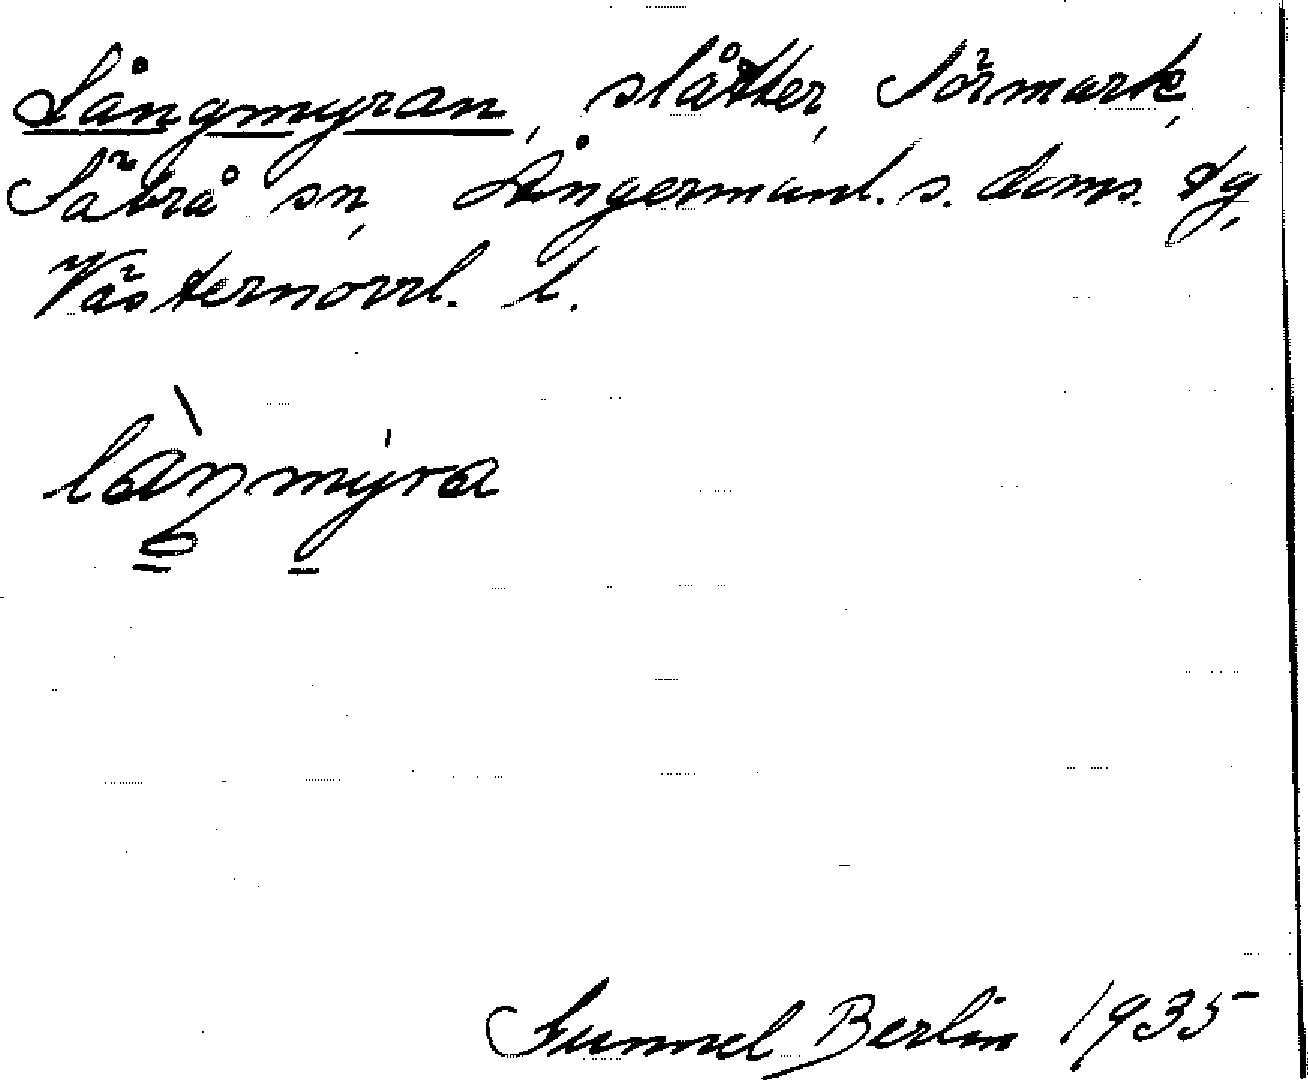 Långmyran, slåtter, Sörmark,
Säbrå sn, Ångermanl. s. doms. tg,
Västernorrl. l.
làŋmyra
Gunnel Berlin 1935